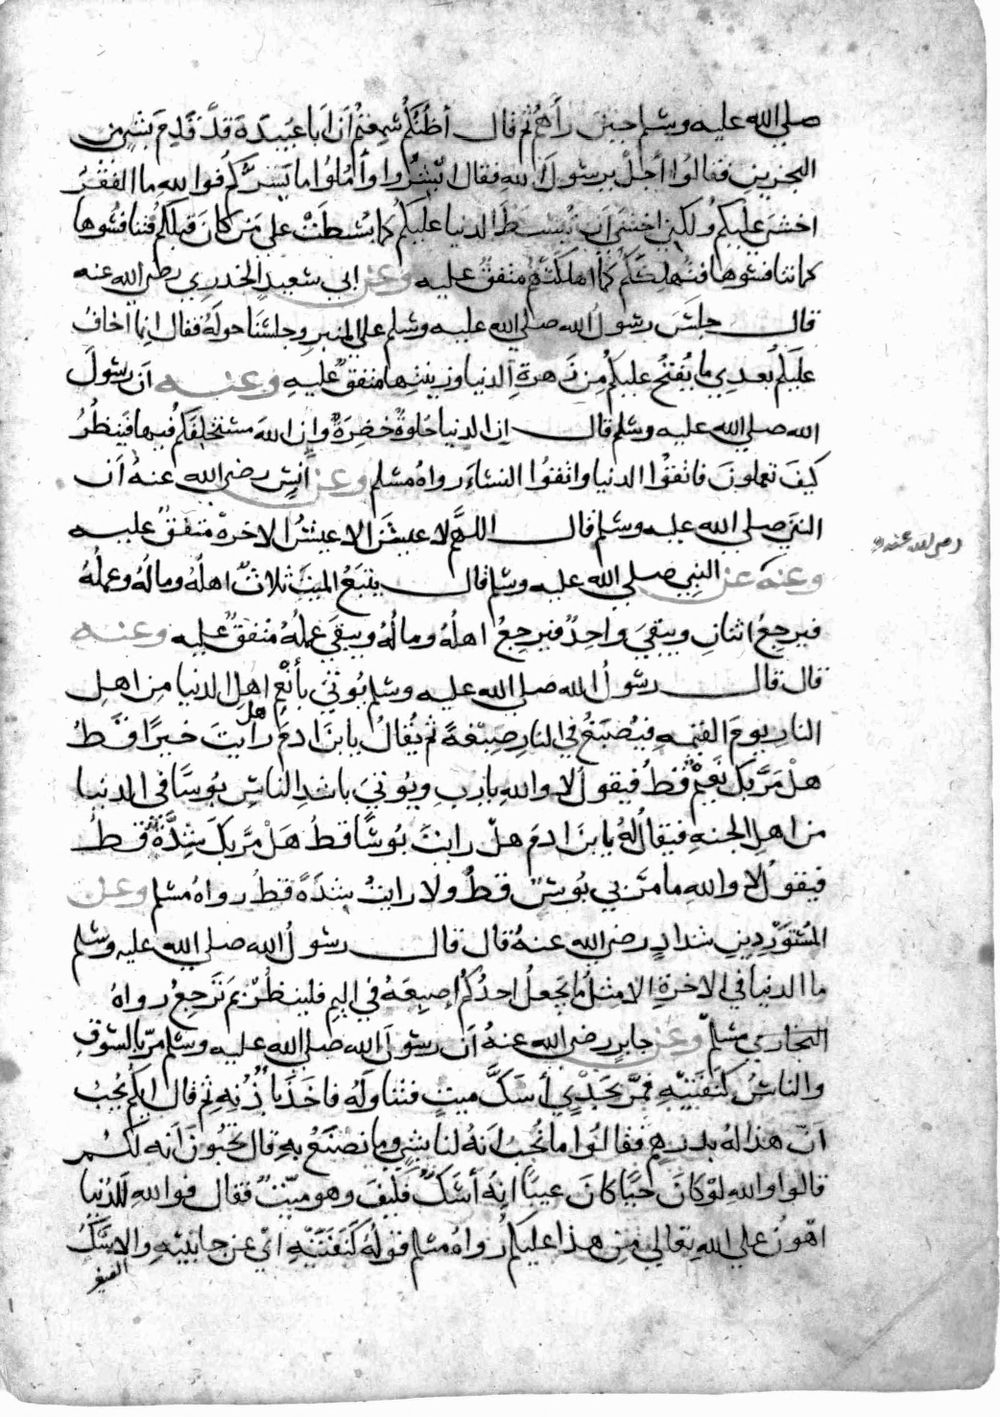 صلى الله عليه وسلم حين رآهم ثم قال أظنكم سمعتم أن أبا عبيدة قد قدم بشيء من
البحرين فقالوا أجل يا رسول الله فقال ابشروا وأملوا ما يسركم فوالله ما الفقر
اخشى عليكم ولكني اخشى أن تبسط الدنيا عليكم كما بسطت على من كان قبلكم فتنافسوها
كما تنافسوها فتهلككم كما اهلكتهم متفق عليه وعن ابي سعيد الخدري رضي الله عنه
قال جلس رسول الله صلى الله عليه وسلم على المنبر وجلسنا حوله فقال انما اخاف
عليكم بعدي ما يفتح عليكم من زهرة الدنيا وزينتها متفق عليه وعنه ان رسول
الله صلى الله عليه وسلم قال ان الدنيا حلوة خضرة وان الله مستخلفكم فيها فينظر
كيف تعملون فاتقوا الدنيا واتقوا النساء رواه مسلم وعن أنس رضي الله عنه أن
النبي صلى الله عليه وسلم قال اللهم لا عيش الا عيش الاخرة متفق عليه
رضي الله عنه
وعنه عن النبي صلى الله عليه وسلم قال يتبع الميت ثلاث اهله وماله وعمله
فيرجع اثنان ويبقى واحد فيرجع اهله وماله ويبقى عمله متفق عليه وعنه
قال قال رسول الله صلى الله عليه وسلم يوتى بأنعم اهل الدنيا من اهل
النار يوم القيمه فيصبغ في النار صبغة ثم يقال يا بن ادم هل رايت خيرا قط
هل مر بك نعيم قط فيقول لا والله يا رب ويوتى باشد الناس بوسا في الدنيا
من اهل الجنه فيقال له يا بن ادم هل رايت بوسا قط هل مر بك شدة قط
فيقول لا والله ما مر بي بوس قط ولا رايت شدة قط رواه مسلم وعن
المستورد بن شداد رضي الله عنه قال قال رسول الله صلى الله عليه وسلم
ما الدنيا في الاخرة الا مثل ما يجعل احدكم إصبعه في اليم فلينظر بم ترجع رواه
البخاري مسلم وعن جابر رضي الله عنه أن رسول الله صلى الله عليه وسلم مر بالسوق
والناس كنفتيه فمر بجدي أسك ميت فتناوله فاخذ باذنه ثم قال ايكم يحب
أن هذا له بدرهم فقالوا ما نحب انه لنا بشي وما نصنع به قال تحبون أنه لكم
قالوا والله لو كان حيا كان عيبا انه أسك فكيف وهو ميت فقال فوالله للدنيا
اهون على الله تعالى من هذا عليكم رواه مسلم قوله كنفتيه اي عن جانبيه والاسك
الصغير